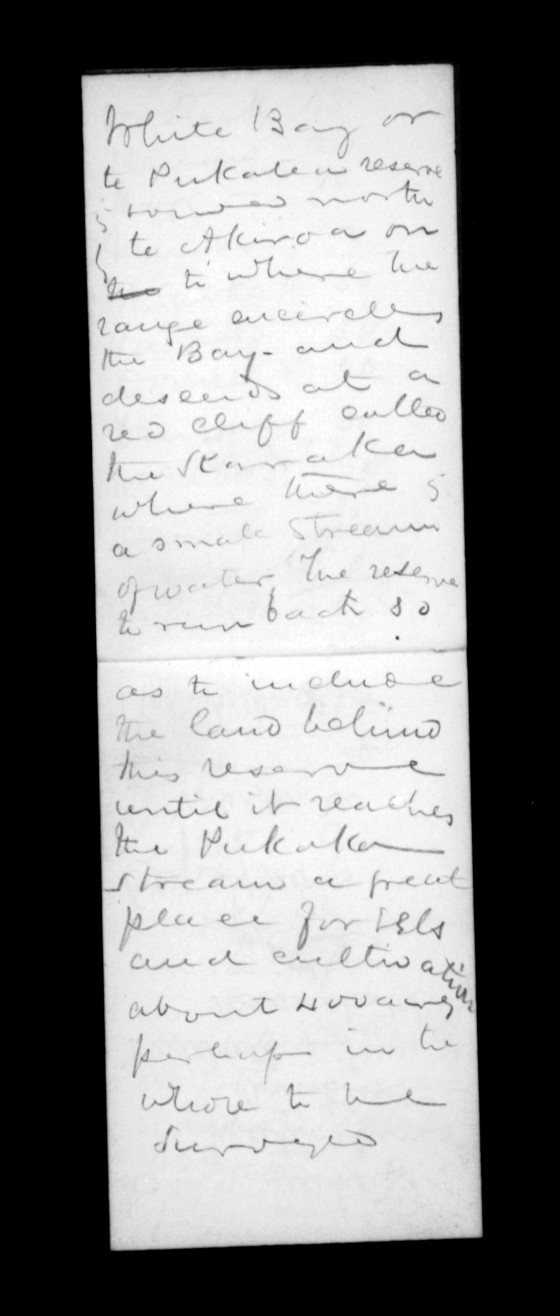 White Bay or
te Pukatea reserve
is bounded north
to Akiroa on
the to where the
range encircles
the Bay - and
descends at a
red cliff called
the Karaka
where there is
a small stream
of water, The reserve
to run back so
as to include
the land behind
this reserve
until it reaches
the Pukaka
stream a great
place for Eels
and cultivation
about 400 acres
perhaps in the
whole to be
surveyed